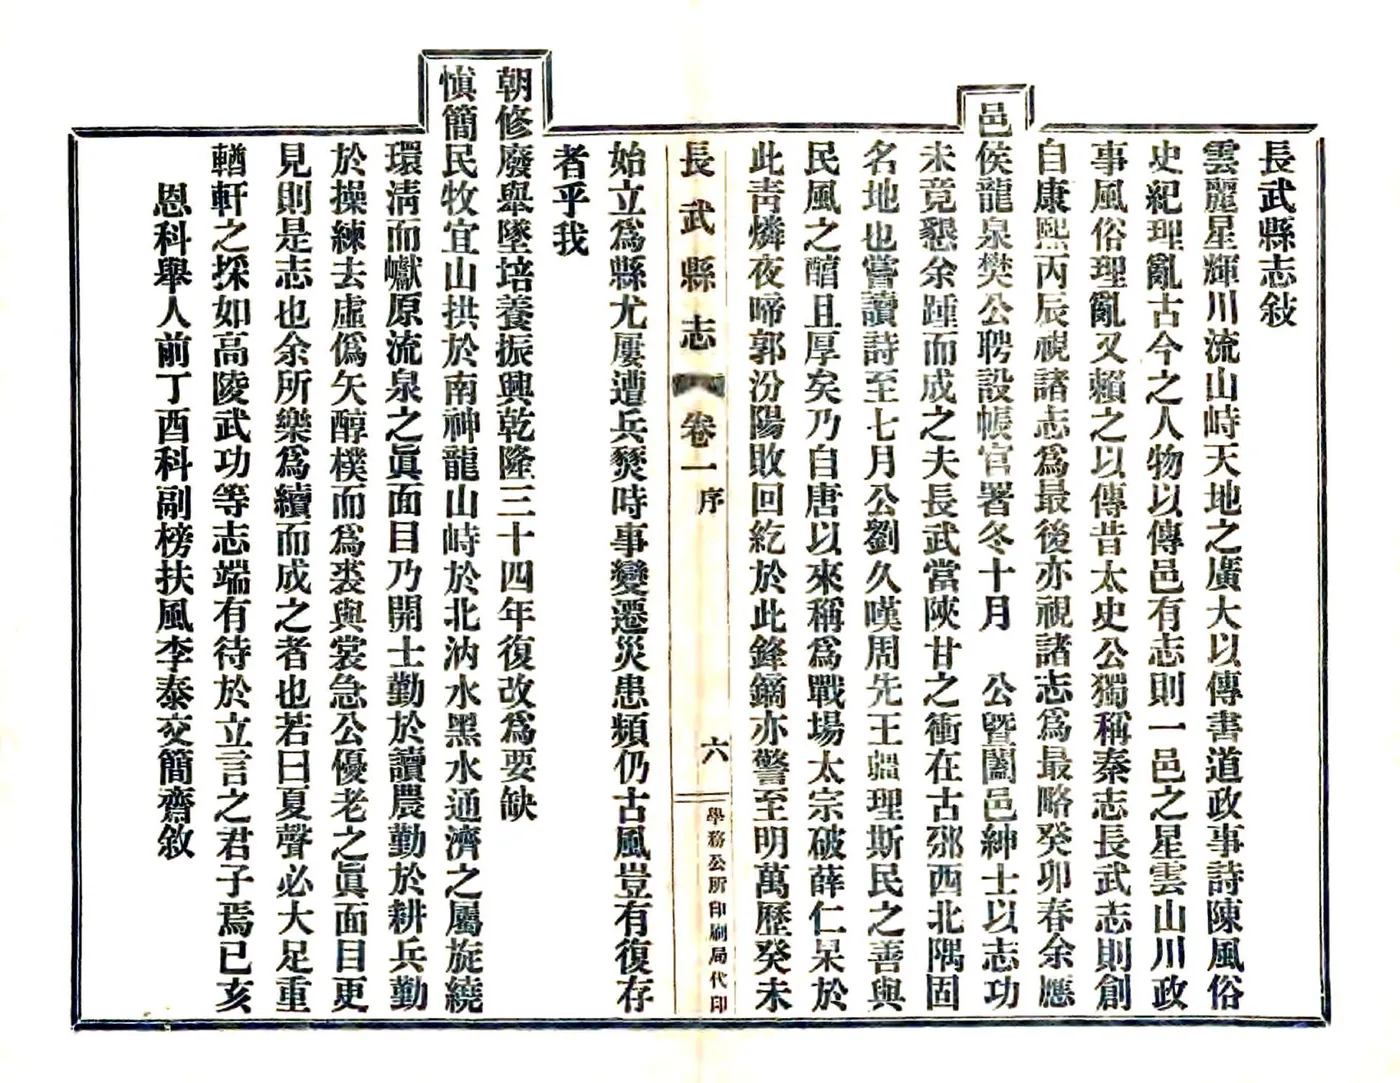 長武縣志敍
雲麗星輝川流山峙天地之廣大以傳書道政事詩陳風俗
史紀理亂古今之人物以傳邑有志則一邑之星雲山川政
事風俗理亂又賴之以傳昔太史公獨稱秦志長武志則創
自康熙丙辰視諸志爲最後亦視諸志爲最略癸卯春余應
邑侯龍泉樊公聘設帳官署冬十月 公曁闔邑紳士以志功
未竟懇余踵而成之夫長武當陝甘之衝在古邠西北隅固
名地也嘗讀詩至七月公劉久嘆周先王疆理斯民之善與
民風之醕且厚矣乃自唐以來稱爲戰場太宗破薛仁杲於
此靑燐夜啼郭汾陽敗回紇於此鋒鏑亦警至明萬歷癸未
長武縣志 卷一 序
六
學務公所印刷局代印
始立爲縣尤屢遭兵燹時事變遷災患頻仍古風豈有復存
者乎我
朝修廢舉墜培養振興乾隆三十四年復改爲要缺
愼簡民牧宜山拱於南神龍山峙於北汭水黑水通濟之屬旋繞
環淸而巘原流泉之眞面目乃開士勤於讀農勤於耕兵勤
於操練去虛僞矢醇樸而爲裘與裳急公優老之眞面目更
見則是志也余所樂爲續而成之者也若曰夏聲必大足重
輶軒之採如高陵武功等志端有待於立言之君子焉已亥
恩科舉人前丁酉科副榜扶風李泰交簡齋敘